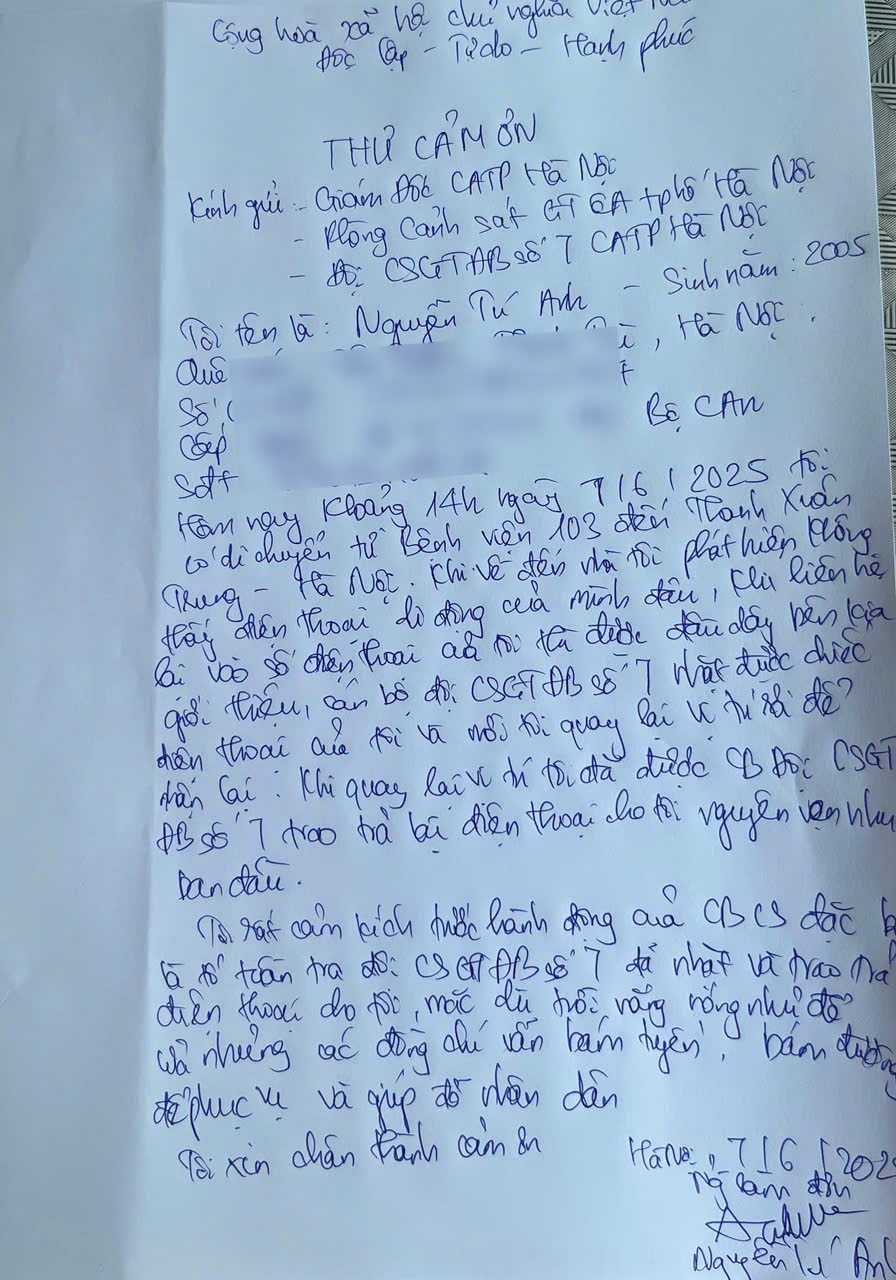 Cộng hoà xã hội chủ nghĩa Việt
Độc lập - Tự do - Hạnh phúc
THƯ CẢM ƠN
Kính gửi: - Giám Đốc CATP Hà Nội
- Phòng Cảnh sát GT CA tphố Hà Nội
- Đội CSGTĐB số 7 CATP Hà Nội
Tôi tên là: Nguyễn Tú Anh - Sinh năm: 2005
Quê , Hà Nội.
Số
Cấp Bộ CAn
Sđt
Hôm nay khoảng 14h ngày 7/6/2025 tôi
có di chuyển từ Bệnh viện 103 đến Thanh Xuân
Trung - Hà Nội. Khi về đến nhà tôi phát hiện không
thấy điện thoại di động của mình đâu, khi liên hệ
lại vào số điện thoại của tôi thì được đầu dây bên kia
giới thiệu, cán bộ đội CSGTĐB số 7 nhặt được chiếc
điện thoại của tôi và mời tôi quay lại vị trí rơi để
nhận lại. Khi quay lại vị trí tôi đã được CB Đội CSGT
ĐB số 7 trao trả lại điện thoại cho tôi nguyên vẹn như
ban đầu.
Tôi rất cảm kích trước hành động của CBCS đặc
là tổ tuần tra đội CSGTĐB số 7 đã nhặt và trao trả
điện thoại cho tôi, mặc dù trời nắng nóng như đổ
lửa nhưng các đồng chí vẫn bám tuyến, bám đường
để phục vụ và giúp đỡ nhân dân
Tôi xin chân thành cảm ơn
Hà Nội, 7/6/202
Ng làm đơn
Nguyễn Tú Anh